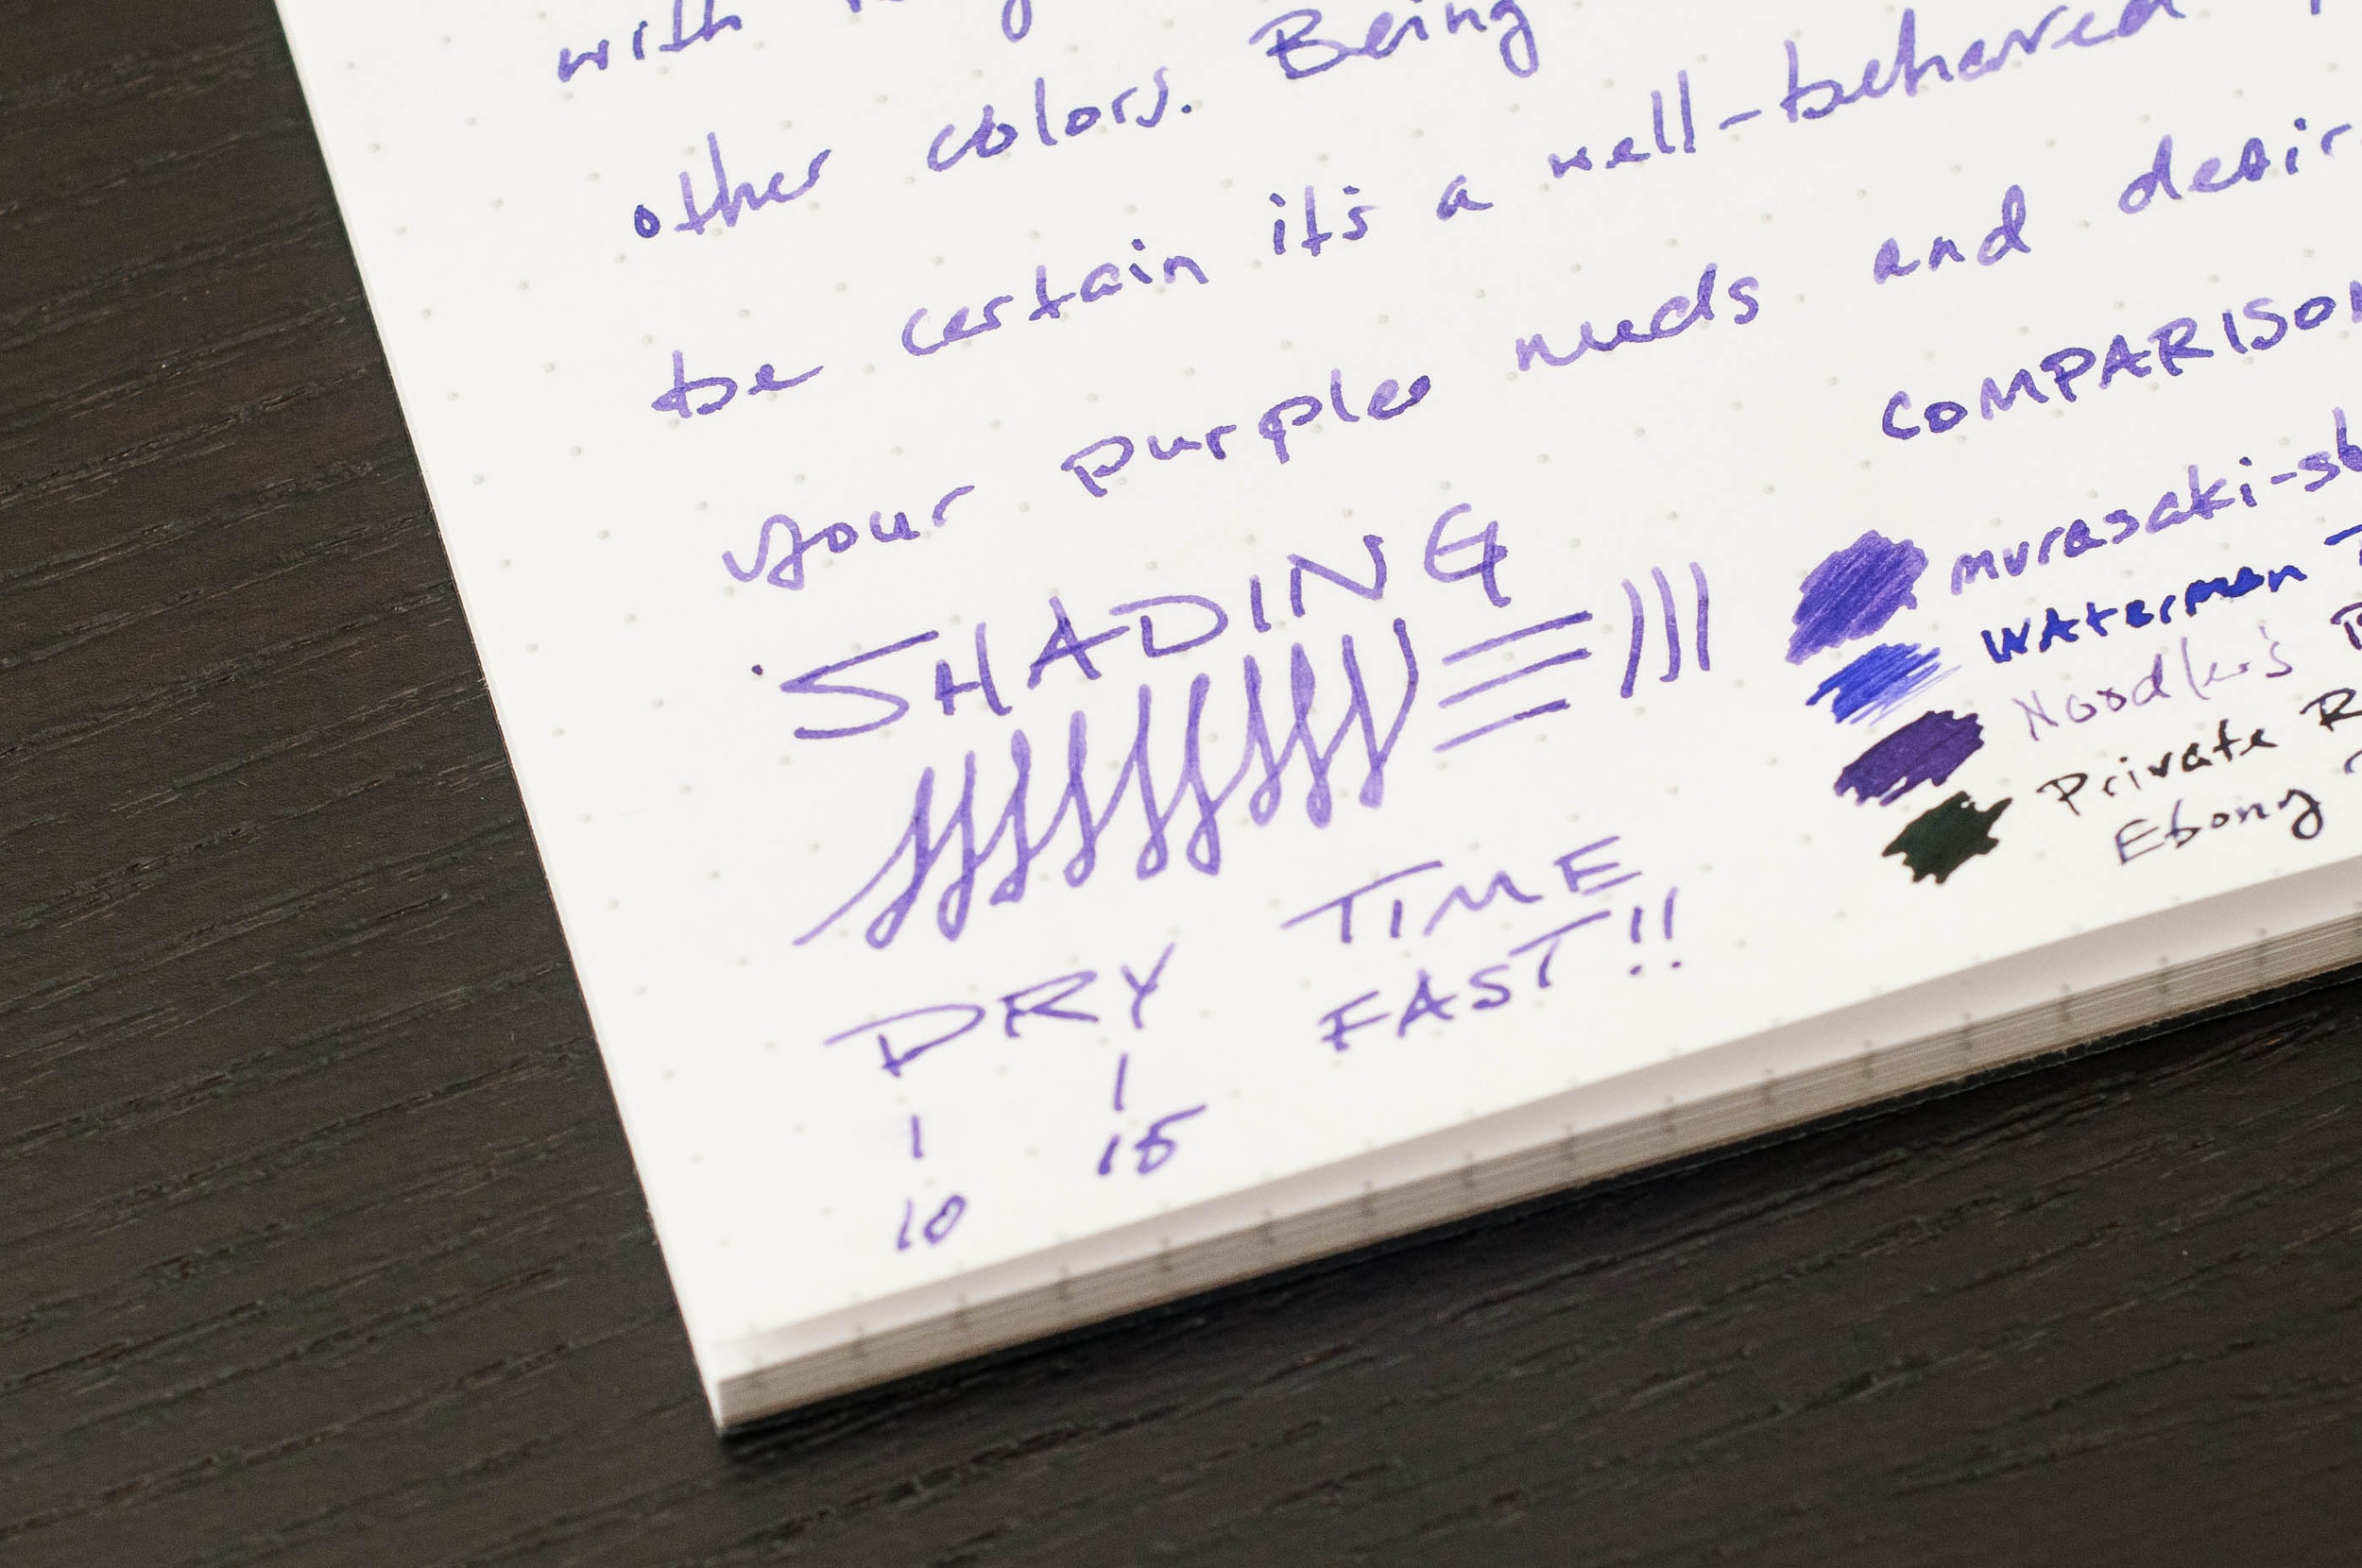 with
other colors. Being
be certain it's a well-behaved
your purple needs and desir
SHADING
COMPARISON
murasaki-s
Waterman
Noodler's
Private R
Ebony
DRY TIME
FAST!!
10 15